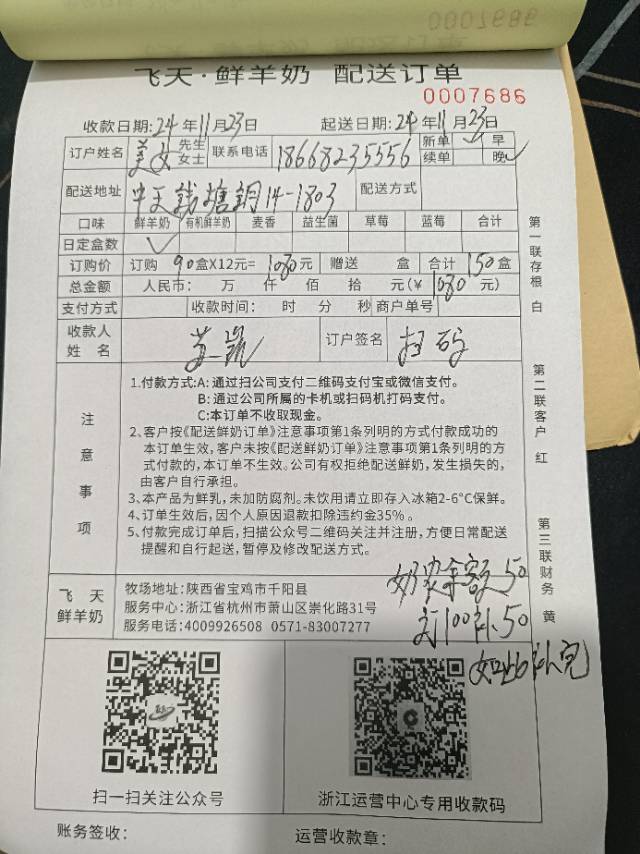 飞天·鲜羊奶 配送订单
0007686
收款日期:24年11月23日 起送日期:24年11月23日
订户姓名 美女 先生 女士 联系电话 18668235556 新单 ✓ 早
续单 晚 ✓
配送地址 中天钱塘铜14-1803 配送方式
口味 鲜羊奶 有机鲜羊奶 麦香 益生菌 草莓 蓝莓 合计
日定盒数 ✓
订购价 订购 90盒X12元=1080元 赠送 盒 合计 150盒
总金额 人民币: 万 仟 佰 拾 元(¥ 1080 元)
支付方式 收款时间: 时 分 秒 商户单号
收款人姓名 苏凯 订户签名 扫码
注意事项
1.付款方式:A:通过扫公司支付二维码支付宝或微信支付。
B:通过公司所属的卡机或扫码机打码支付。
C:本订单不收取现金。
2、客户按《配送鲜奶订单》注意事项第1条列明的方式付款成功的
本订单生效,客户未按《配送鲜奶订单》注意事项第1条列明的方
式付款的,本订单不生效。公司有权拒绝配送鲜奶,发生损失的,
由客户自行承担。
3、本产品为鲜乳,未加防腐剂。未饮用请立即存入冰箱2-6°C保鲜。
4、订单生效后,因个人原因退款扣除违约金35%。
5、付款完成订单后,扫描公众号二维码关注并注册,方便日常配送
提醒和自行起送,暂停及修改配送方式。
第一联存根 白
第二联客户 红
第三联财务 黄
飞天
鲜羊奶
牧场地址:陕西省宝鸡市千阳县
服务中心:浙江省杭州市萧山区崇化路31号
服务电话:4009926508 0571-83007277
余额50
订100补50
如此补完
扫一扫关注公众号
浙江运营中心专用收款码
账务签收: 运营收款章: